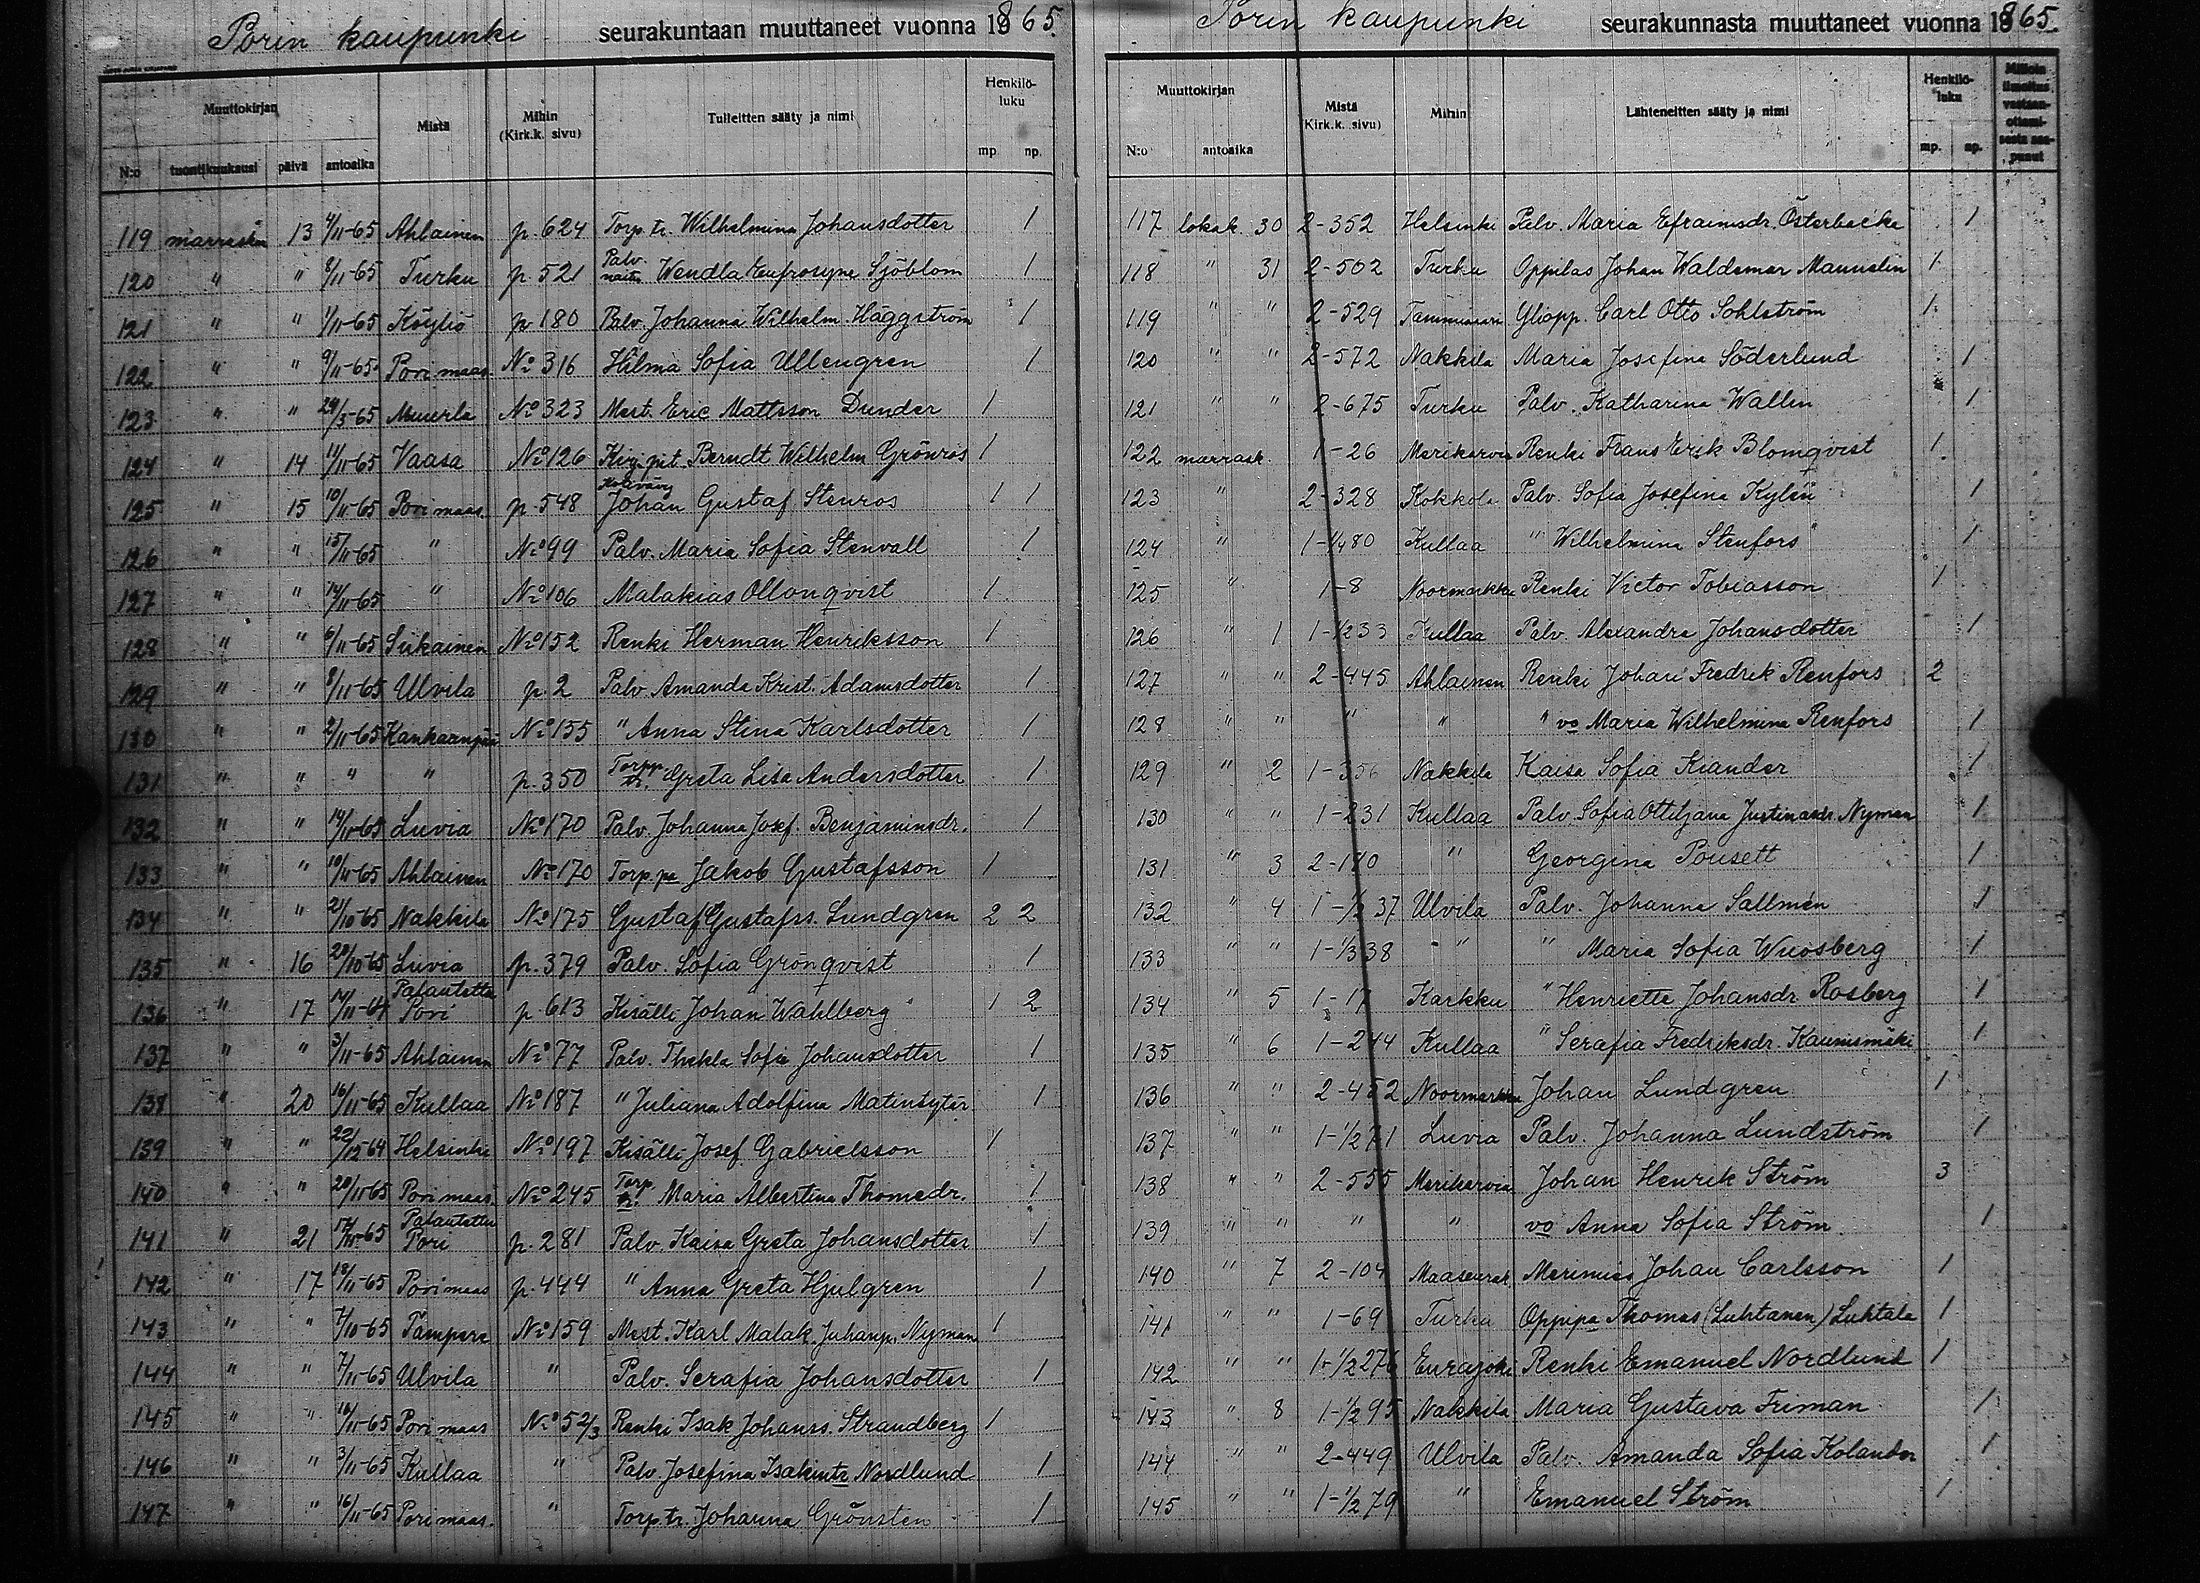 Porin kaupunki seurakuntaan muuttaneet vuonna 1865.
Muuttokirjan Mistä Mihin (Kirk.k. sivu) Tulleitten sääty ja nimi Henkilö-luku
N:o tuontikuukausi päivä antoaika mp. np.
119 marrask 13 4/11-65 Ahlainen p. 624 Torp. tr. Wilhelmina Johansdotter 1
120 " " 8/11-65 Turku p. 521 Palv. Wendla Eufrosyne Sjöblom 1
121 " " 1/11-65 Köyliö p 180 Palv. Johanna Wilhelm. Häggström 1
122 " " 9/11-65 Pori maas. No 316 Hilma Sofia Ullengren 1
123 " " 24/3-65 Muurla No 323 Mest. Eric Mattsson Dunder 1
124 " 14 11/11-65 Vaasa No 126 Kirj. pit. Berndt Wilhelm Grönros 1
125 " 15 10/11-65 Pori maas. p. 548 Johan Gustaf Stenros 1 1
126 " " 15/11-65 " No 99 Palv. Maria Sofia Stenvall 1
127 " " 14/11-65 " No 106 Malakias Ollonqvist 1
128 " " 6/11-65 Siikainen No 152 Renki Herman Henriksson 1
129 " " 8/11-65 Ulvila p. 2 Palv Amanda Krist. Adamsdotter 1
130 " " 2/11-65 Kankaanpää No 155 " Anna Stina Karlsdotter 1
131 " " " " p. 350 Torpp. tr. Greta Lisa Andersdotter 1
132 " " 14/11-65 Luvia No 170 Palv. Johanna Josef. Benjaminsdr. 1
133 " " 10/11-65 Ahlainen No 170 Torp. pa Jakob Gustafsson 1
134 " " 21/10-65 Nakkila No 175 Gustaf Gustafss. Lundgren 2 2
135 " 16 28/10-65 Luvia p. 379 Palv. Sofia Grönqvist 1
136 " 17 14/11-64 Palautettu Pori p. 613 Kisälli Johan Wahlberg 1 2
137 " " 3/11-65 Ahlainen No 77 Palv. Thekla Sofia Johansdotter 1
138 " 20 16/11-65 Kullaa No 187 " Juliana Adolfina Matintytär 1
139 " " 22/12 64 Helsinki No 197 Kisälli Josef Gabrielsson 1
140 " " 20/11-65 Pori maas. No 245 Torp. tr. Maria Albertina Thomedr. 1
141 " 21 Palautettu Pori p. 281 Palv. Kaisa Greta Johansdotter 1
142 " 17 18/11-65 Pori maas p. 444 " Anna Greta Hjulgren 1
143 " " 7/10-65 Tampere No 159 Mest. Karl Malak. Juhanp. Nyman 1
144 " " 7/11-65 Ulvila " Palv. Serafia Johansdotter 1
145 " " 16/11-65 Pori maas No 52/3 Renki Isak Johanss. Strandberg 1
146 " " 3/11-65 Kullaa " Palv. Josefina Isakintr Nordlund 1
147 " " 16/11-65 Pori maas. " Torp. tr. Johanna Grönsten 1
Porin kaupunki seurakunnasta muuttaneet vuonna 1865.
Muuttokirjan Mistä (Kirk.k. sivu) Mihin Lähteneitten sääty ja nimi Henkilö-luku Milloin ilmoitus vastaan-ottami-sesta saa-punut
N:o antoaika mp. np.
117 lokak. 30 2-352 Helsinki Palv. Maria Efraimsdr. Österbacka 1
118 " 31 2-502 Turku Oppilas Johan Waldemar Maunelin 1
119 " " 2-529 Tammisaari Yliopp. Carl Otto Sohlström 1
120 " " 2-572 Nakkila Maria Josefina Söderlund 1
121 " " 2-675 Turku Palv. Katharina Wallin 1
122 marrask. 1-26 Merikarvia Renki Frans Erik Blomqvist 1
123 " 2-328 Kokkola Palv. Sofia Josefina Kylén 1
124 " 1-1/480 Kullaa " Wilhelmina Stenfors 1
125 " 1-8 Noormarkku Renki Victor Tobiasson 1
126 " 1 1-1/233 Kullaa Palv. Alexandra Johansdotter 1
127 " " 2-445 Ahlainen Renki Johan Fredrik Renfors 2
128 " " " " " vo Maria Wilhelmina Renfors 1
129 " 2 1-356 Nakkila Kaisa Sofia Kiander 1
130 " " 1-231 Kullaa Palv. Sofia Ottiljana Justinasdr. Nyman 1
131 " 3 2-180 " Georgina Pousett 1
132 " 4 1-1/2 37 Ulvila Palv. Johanna Sallmén 1
133 " " 1-1/3 38 " " Maria Sofia Wuosberg 1
134 " 5 1-17 Karkku " Henriette Johansdr Rosberg 1
135 " 6 1-244 Kullaa " Serafia Fredriksdr. Kaunismäki 1
136 " " 2-452 Noormarkku Johan Lundgren 1
137 " " 1-1/271 Luvia Palv. Johanna Lundström 1
138 " " 2-555 Merikarvia Johan Henrik Ström 3
139 " " " " vo Anna Sofia Ström 1
140 " 7 2-104 Maaseurak. Merimies Johan Carlsson 1
141 " " 1-69 Turku Oppipa Thomas (Luhtanen) Luhtala 1
142 " " 1-1/2 276 Eurajoki Renki Emanuel Nordlund 1
143 " 8 1-1/2 95 Nakkila Maria Gustava Friman 1
144 " " 2-449 Ulvila Palv. Amanda Sofia Kolander 1
145 " " 1-1/2 79 " Emanuel Ström 1